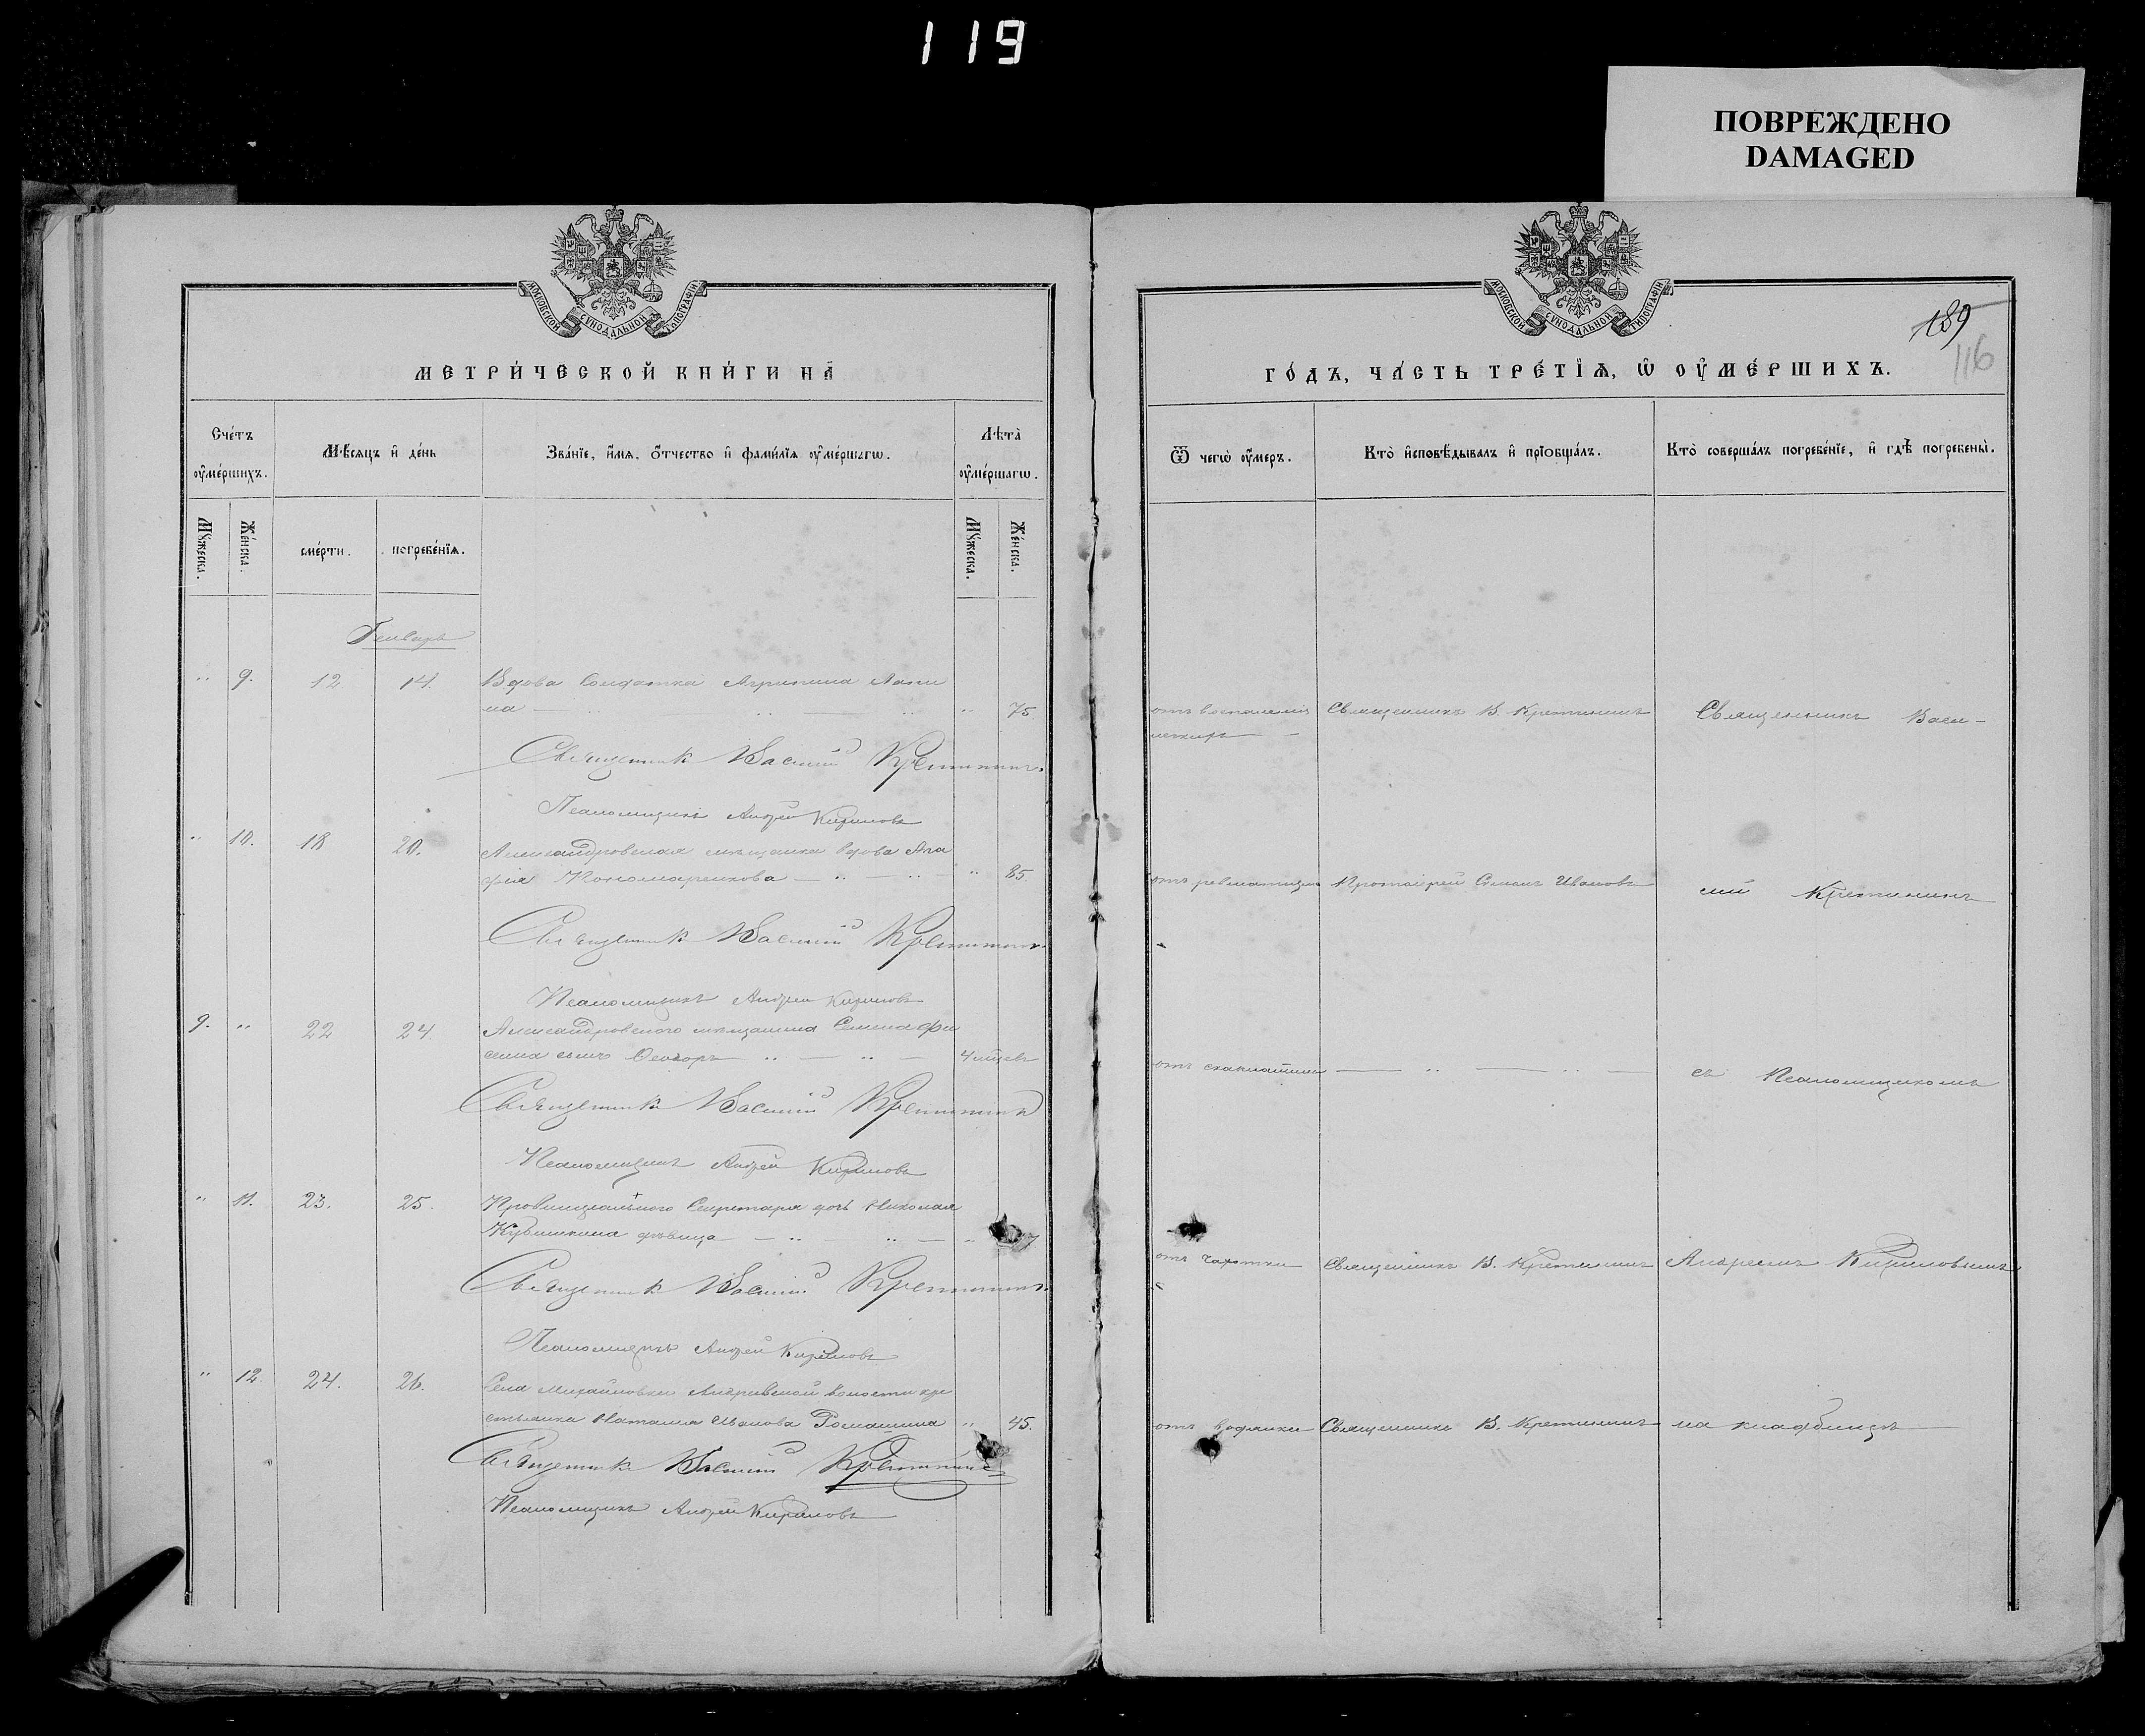 119
ПОВРЕЖДЕНО
DAMAGED
МОСКОВСКОЙ СѴНОДАЛЬНОЙ ТИПОГРАФІИ
МЕТРИ́ЧЕСКОЙ КНИ́ГИ НА̀
Сче́тъ ᲂу҆ме́ршихъ.
Мѣ́сяцъ и҆ де́нь
Зва́нїе, и҆́мѧ, ѻ҆́тчество и҆ фами́лїѧ ᲂу҆ме́ршагѡ.
Лѣта̀ ᲂу҆ме́ршагѡ.
Мꙋ́жеска.
Же́нска.
сме́рти.
погребе́нїѧ.
Мꙋ́жеска.
Же́нска.
Генварь
" 9. 12 14. Вдова Солдатка Агрипина Лапи
на — " — " 75
Священникъ Василий Кретининъ.
Псаломщикъ Андрей Кириловъ
" 10. 18 20. Александровская мещанка вдова Ага
фiя Пономаренкова — " — " 85
Священникъ Василий Кретининъ.
Псаломщикъ Андрей Кириловъ
9. " 22 24 Александровского мещанина Семена Фи
сенка сынъ Феодоръ — " — " — 4 мцевъ
Священникъ Василий Кретининъ
Псаломщикъ Андрей Кириловъ
" 11. 23. 25. Провинциального Секретаря дочь Николая
девица — " — " — "
Священникъ Василий Кретининъ.
Псаломщикъ Андрей Кириловъ
" 12 24. 26. Села Михайловки Андреевской волости кре
стьянка Наталия Иванова Ромашина " 45.
Священникъ Василий Кретининъ
Псаломщикъ Андрей Кириловъ
МОСКОВСКОЙ СѴНОДАЛЬНОЙ ТИПОГРАФІИ
189
116
ГО́ДЪ, ЧА́СТЬ ТРЕ́ТЇѦ, Ѡ҆ ОУ҆МЕ́РШИХЪ.
Ѿ чегѡ̀ ᲂу҆́меръ.
Кто̀ и҆сповѣ́дывалъ и҆ прїобща́лъ.
Кто̀ соверша́лъ погребе́нїе, и҆ гдѣ̀ погребены̀.
отъ воспаления Священникъ В. Кретининъ Священникъ Васи-
легкихъ —
отъ ревматизма Протоиерей Симонъ Ивановъ лий Кретининъ
отъ скарлатины — " — " — съ Псаломщикомъ
отъ чахотки Священникъ В. Кретининъ Андреемъ Кириловымъ
отъ водянки Священникъ В. Кретининъ на кладбищѣ